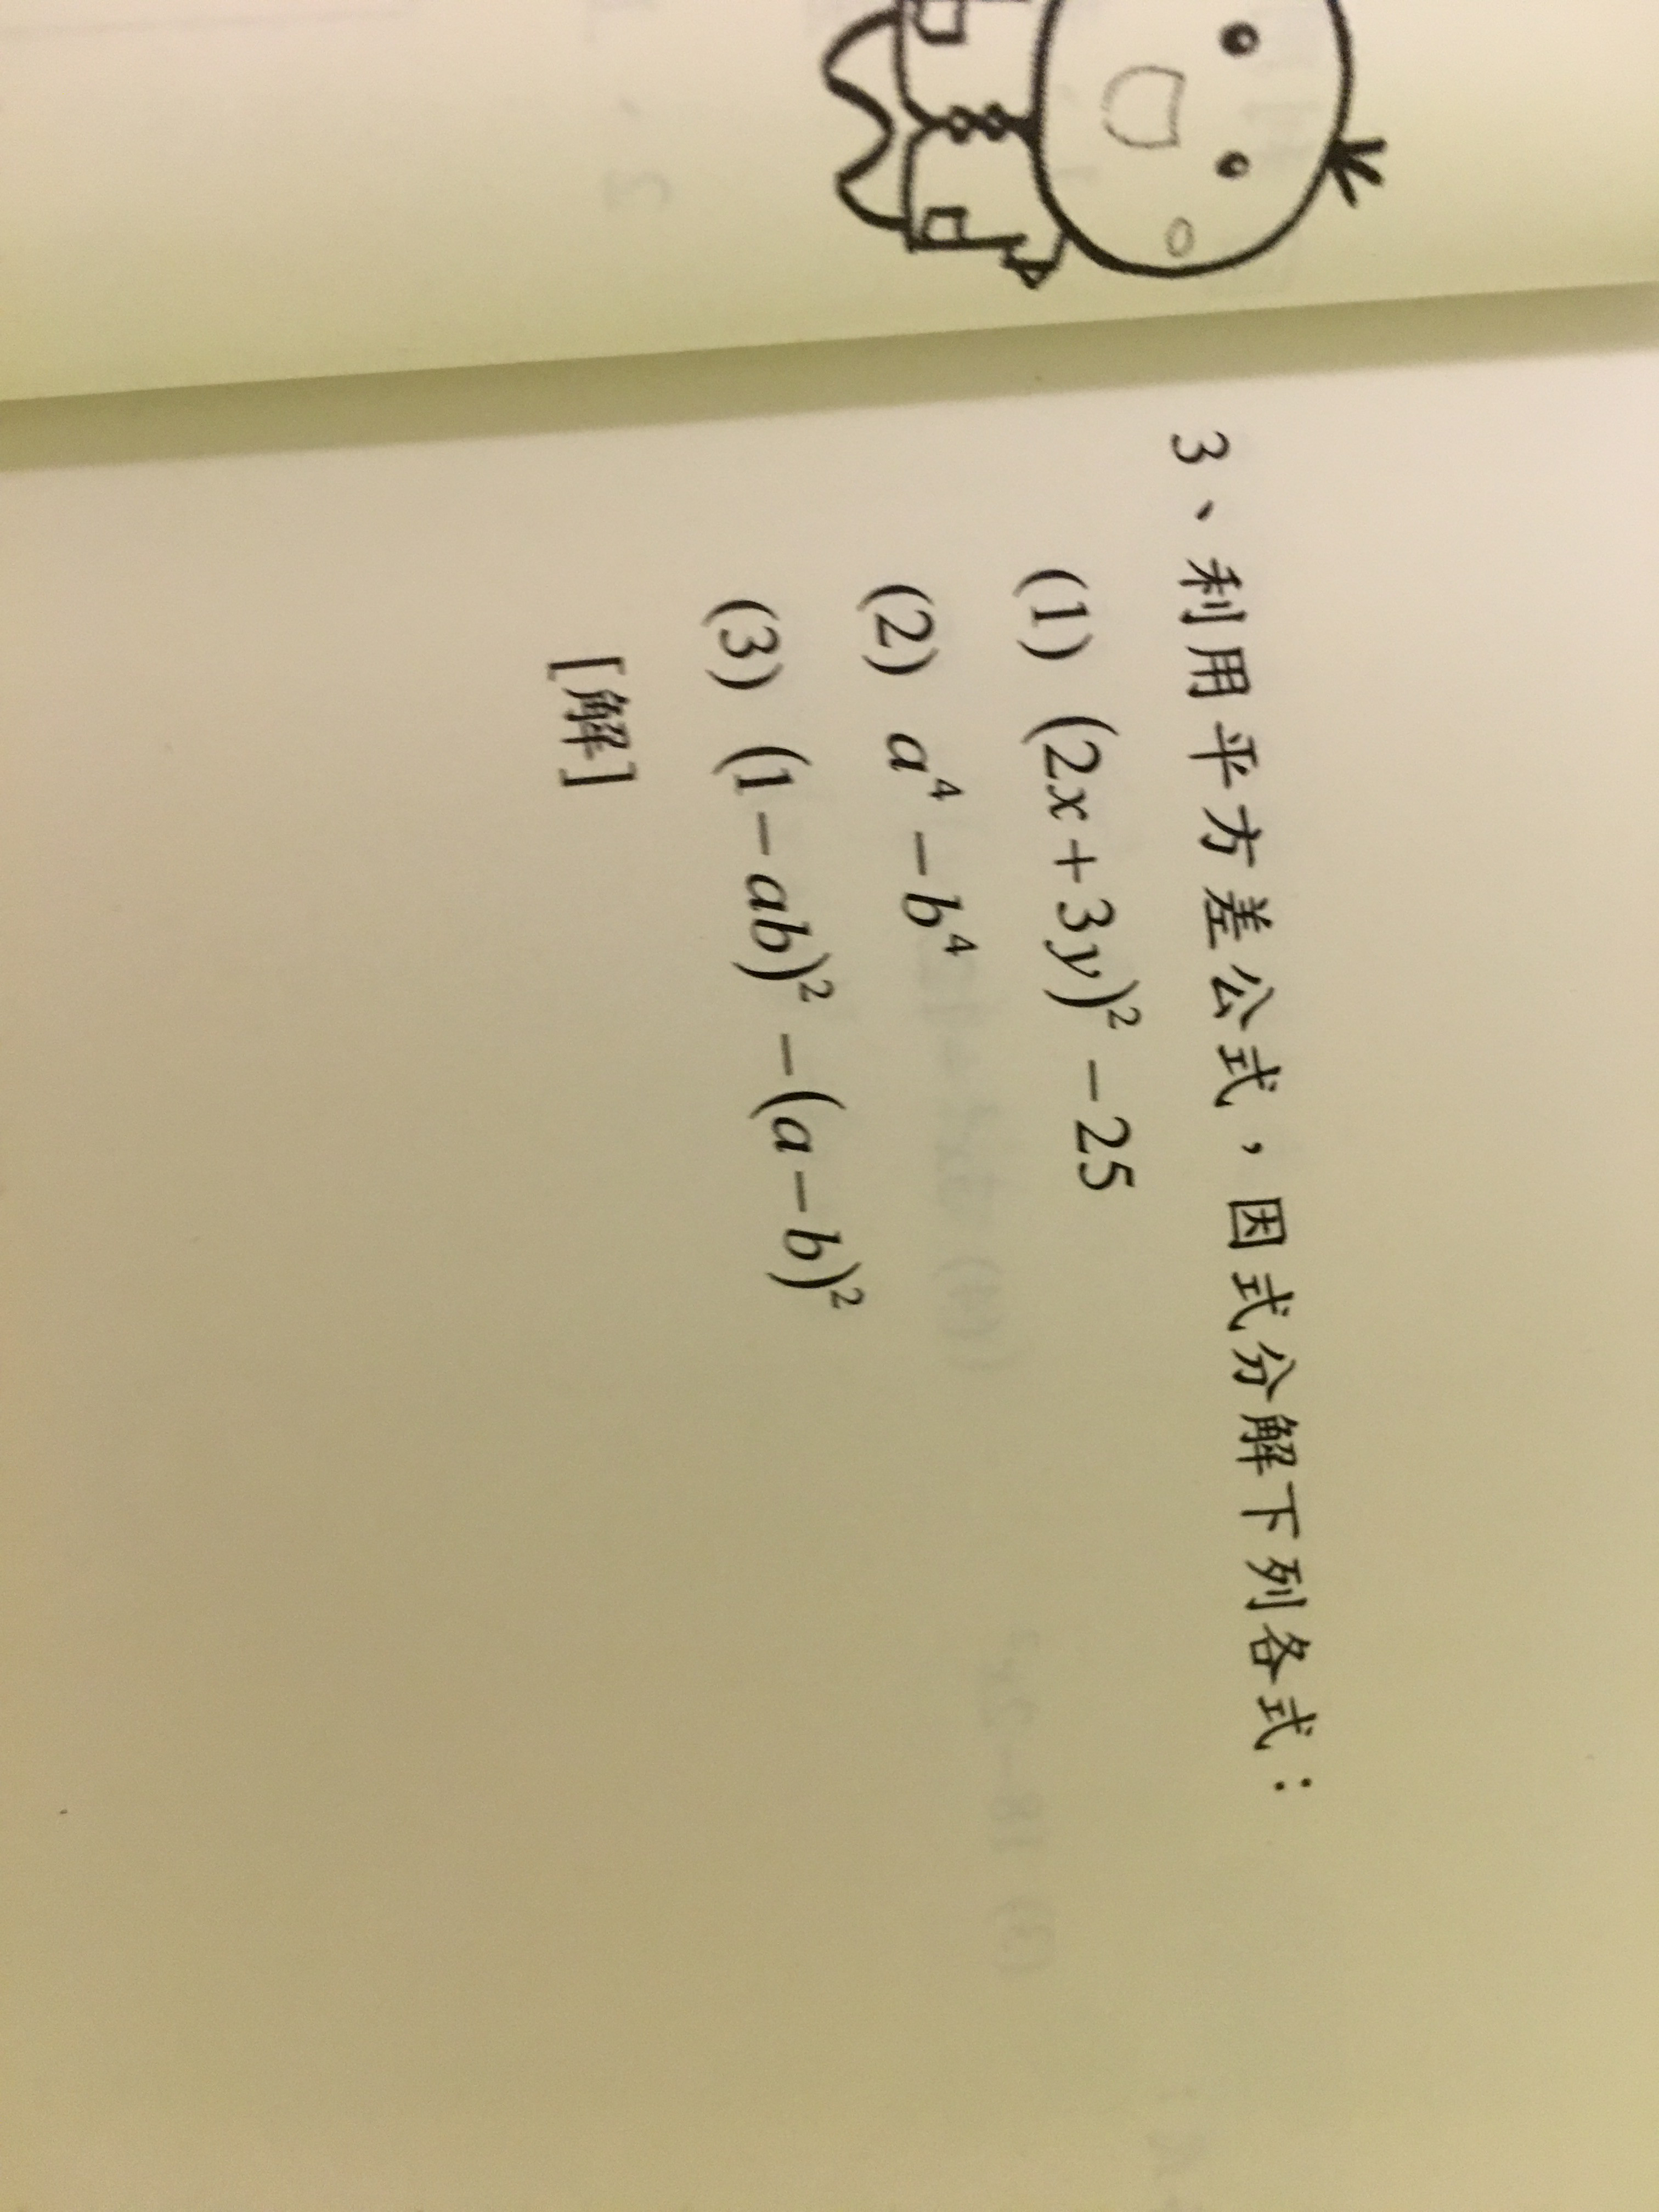 3、利用平方差公式，因式分解下列各式：
(1) (2x+3y)² −25
(2) a⁴ − b⁴
(3) (1−ab)² −(a−b)²
[解]